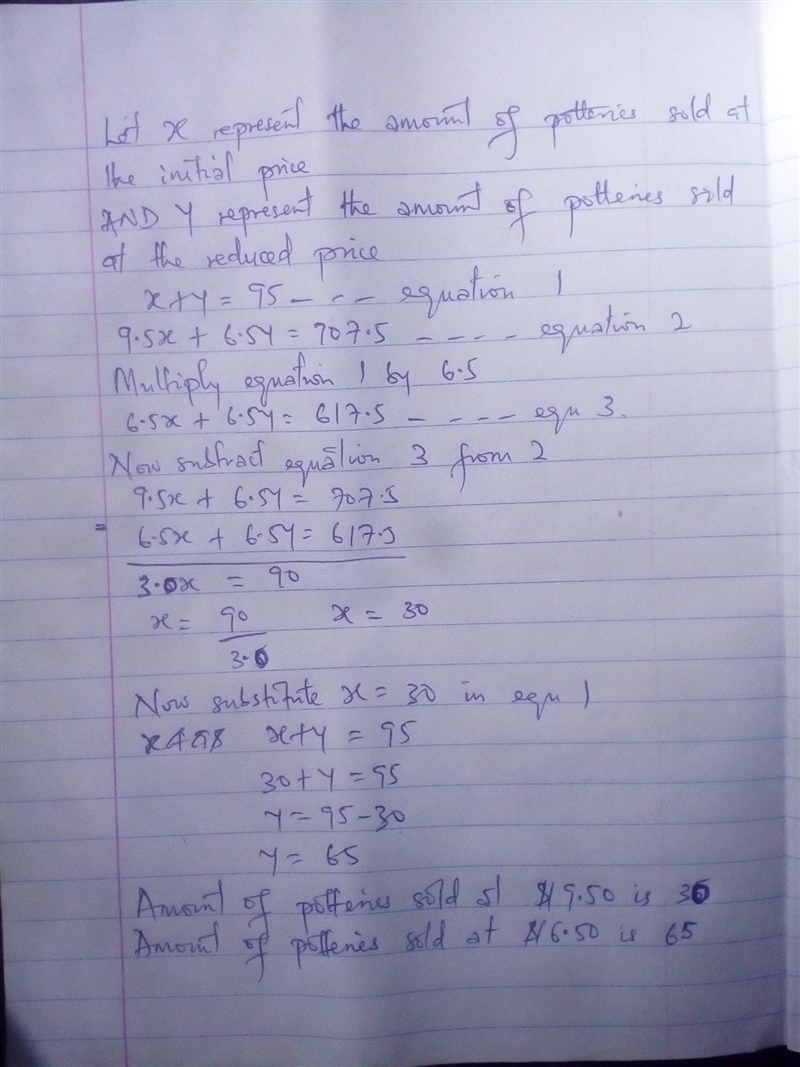 Let x represent the amount of potteries sold at
the initial price
AND Y represent the amount of potteries sold
at the reduced price
x+y = 95 - - - equation 1
9.5x + 6.5y = 707.5 - - - - equation 2
Multiply equation 1 by 6.5
6.5x + 6.5y = 617.5 - - - - equ 3.
Now subtract equation 3 from 2
9.5x + 6.5y = 707.5
= 6.5x + 6.5y = 617.5
3.0x = 90
x = 90 x = 30
3.0
Now substitute x = 30 in equ 1
x+y = 95
30 + y = 95
y = 95 - 30
y = 65
Amount of potteries sold at $9.50 is 30
Amount of potteries sold at $6.50 is 65